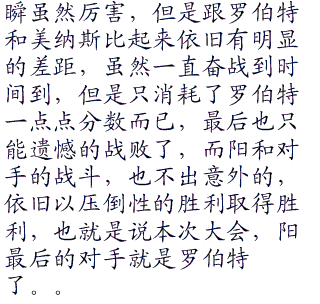 瞬虽然厉害，但是跟罗伯特
和美纳斯比起来依旧有明显
的差距，虽然一直奋战到时
间到，但是只消耗了罗伯特
一点点分数而已，最后也只
能遗憾的战败了，而阳和对
手的战斗，也不出意外的，
依旧以压倒性的胜利取得胜
利，也就是说本次大会，阳
最后的对手就是罗伯特
了。。